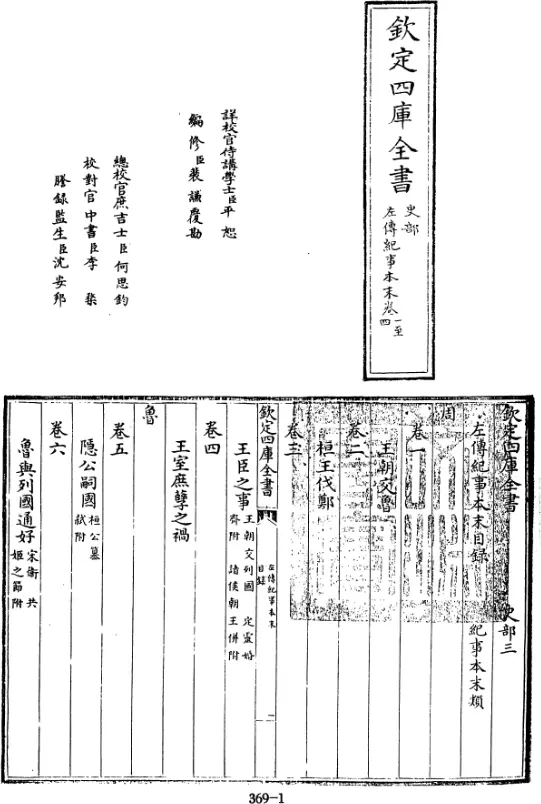 欽定四庫全書
史部
左傳紀事本末卷一至四
詳校官侍講學士臣平恕
編修臣裴謙覆勘
總校官庶吉士臣何思鈞
校對官中書臣李棨
謄錄監生臣沈安邦
欽定四庫全書
史部三
左傳紀事本末目録
紀事本末類
周
卷一
王朝交魯
卷二
桓王伐鄭
卷三
欽定四庫全書
左傳紀事本末
目録
一
王臣之事
王朝交列國
定靈婚齊附
諸侯朝王併附
卷四
王室庶孽之禍
魯
卷五
隱公嗣國
桓公簒弑附
卷六
魯與列國通好
宋衛共姬之節附
369-1